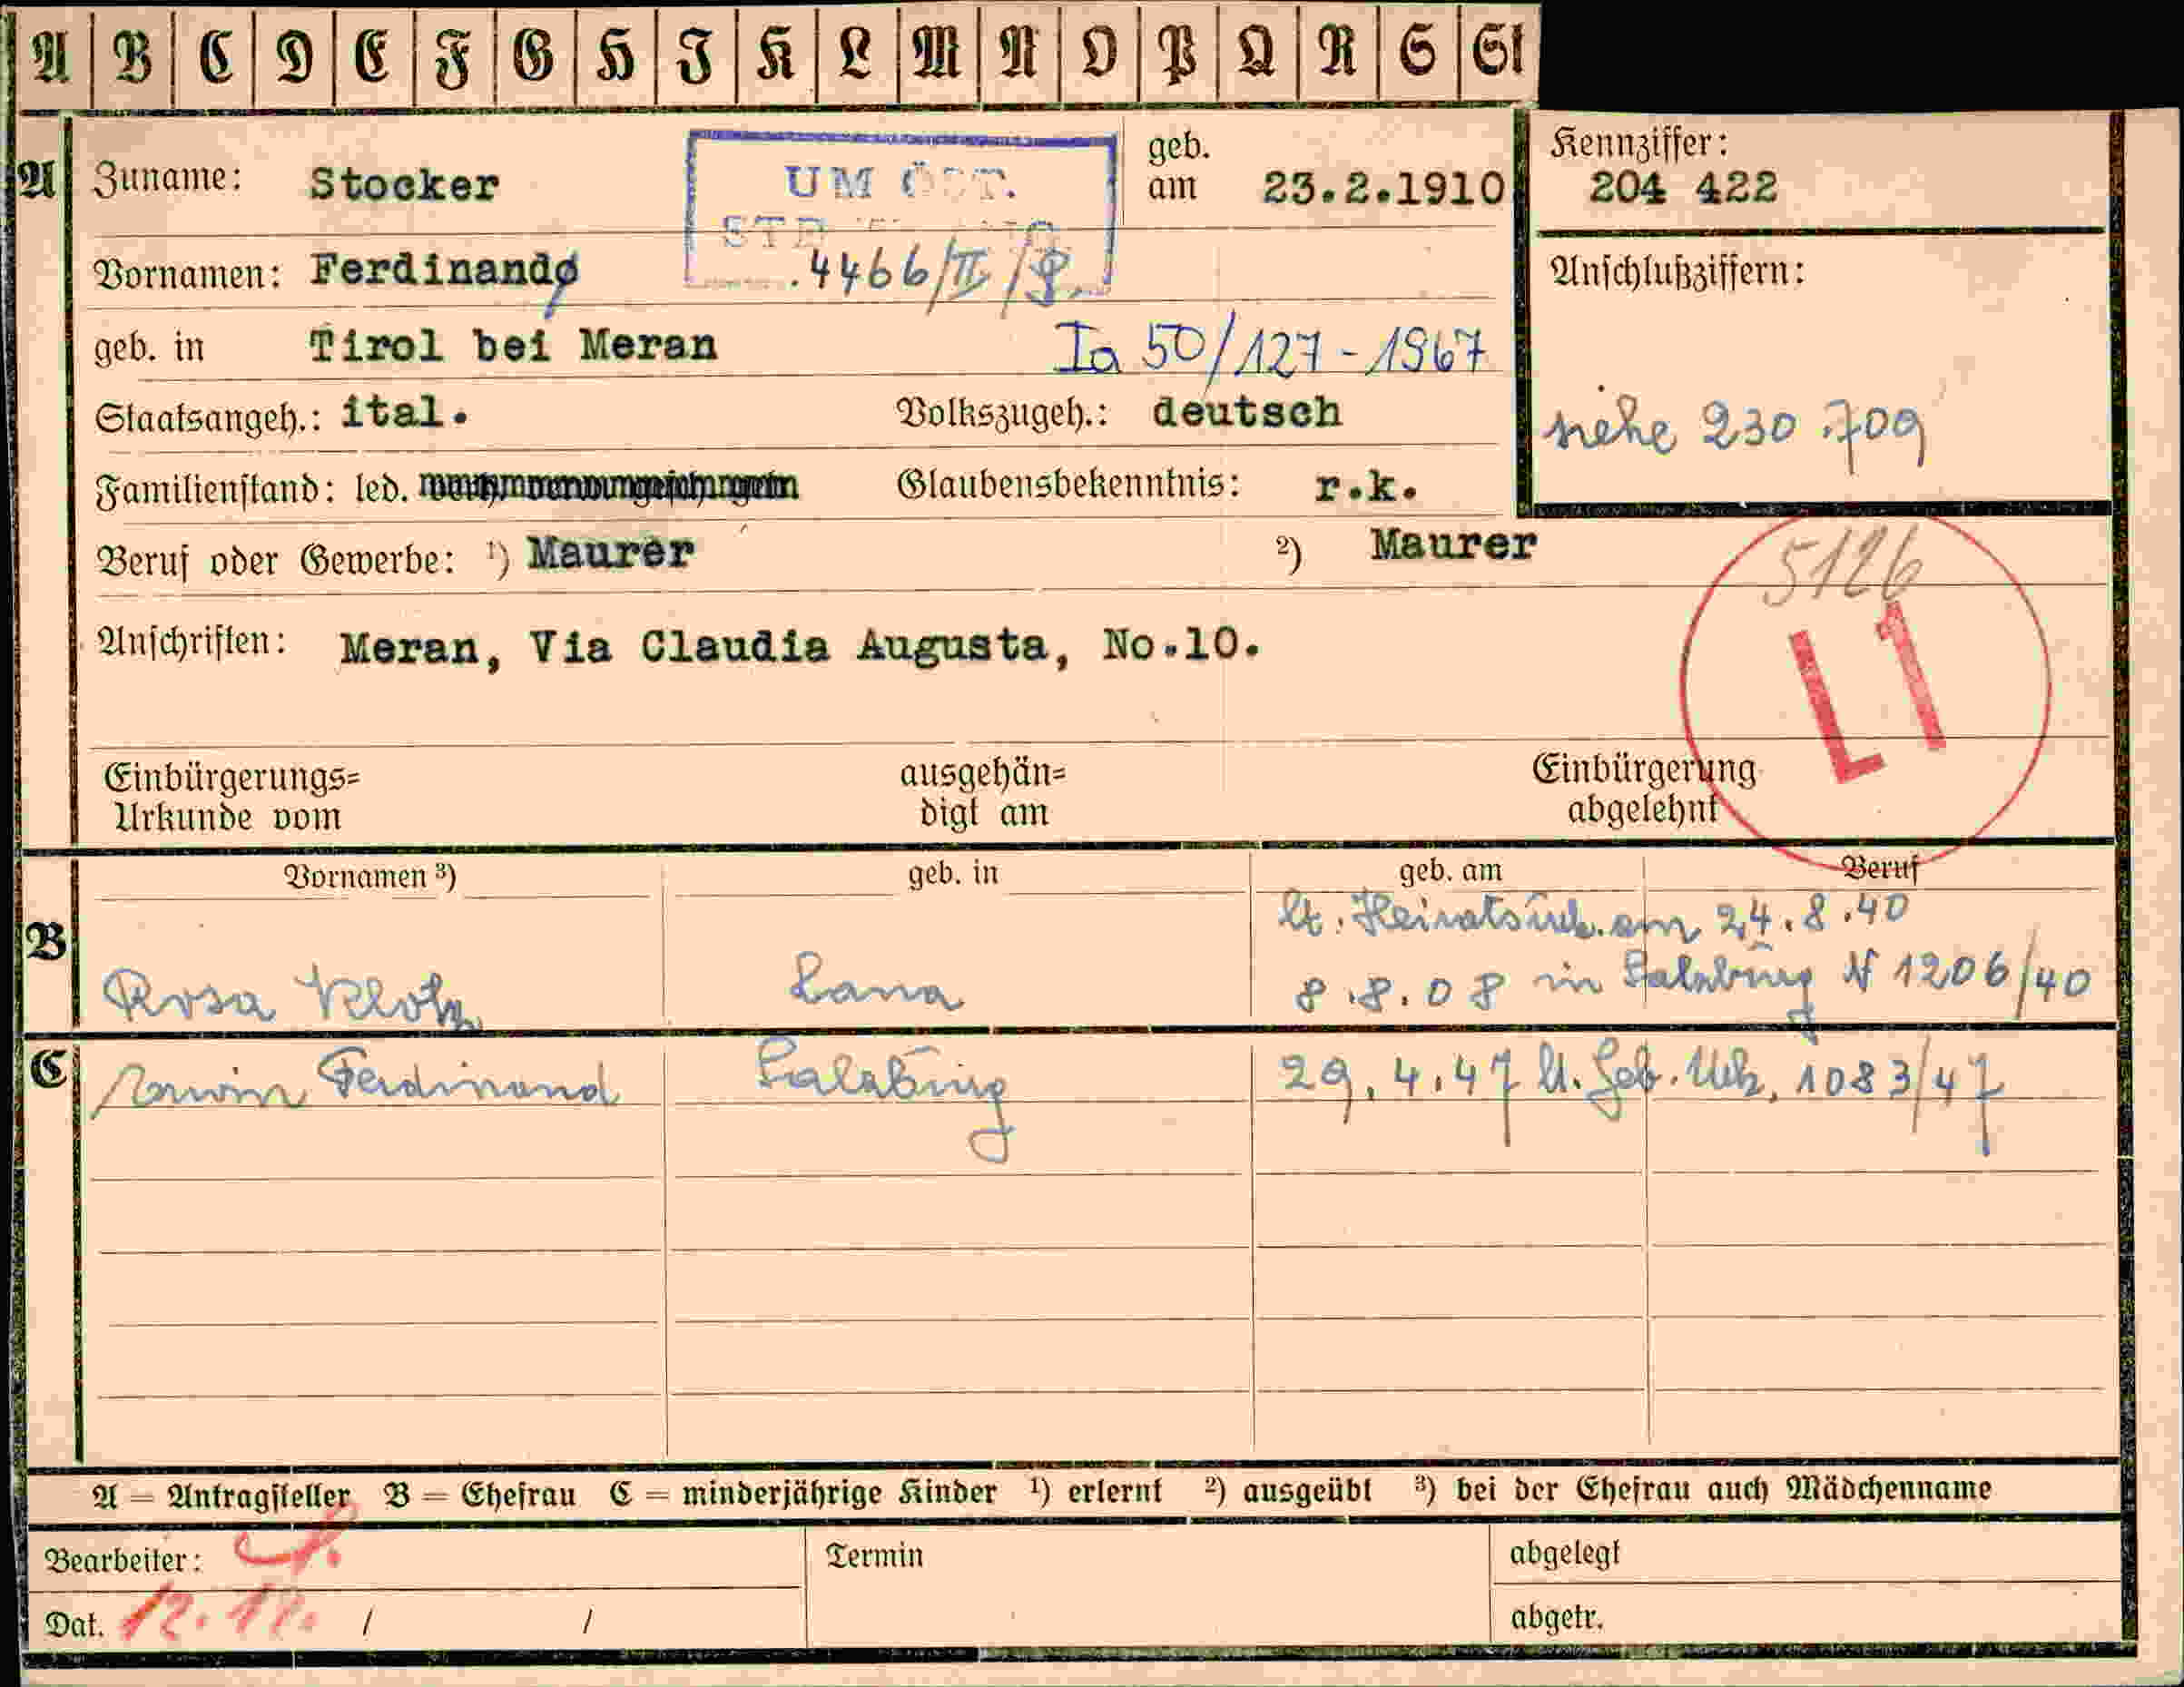 A B C D E F G H I K L M N O P Q R S St
A Zuname: Stocker
UM ÖST.
4466/II/
geb. am 23.2.1910
Kennziffer: 204 422
Vornamen: Ferdinando
Anschlußziffern:
geb. in Tirol bei Meran
Ia 50/127-1967
Staatsangeh.: ital. Volkszugeh.: deutsch
siehe 230.709
Familienstand: led. Glaubensbekenntnis: r.k.
Beruf oder Gewerbe: ¹) Maurer ²) Maurer
5126
L1
Anschriften: Meran, Via Claudia Augusta, No.10.
Einbürgerungs= Urkunde vom
ausgehän= digt am
Einbürgerung abgelehnt
Vornamen ³) geb. in geb. am Beruf
lt. Heiratsurk. am 24.8.40
B Rosa Klotz Lana 8.8.08 in Salzburg N 1206/40
C Ferdinand Salzburg 29.4.47 lt. Geb. Urk. 1083/47
A = Antragsteller B = Ehefrau C = minderjährige Kinder ¹) erlernt ²) ausgeübt ³) bei der Ehefrau auch Mädchenname
Bearbeiter:
Termin
abgelegt
Dat. 12. / /
abgetr.